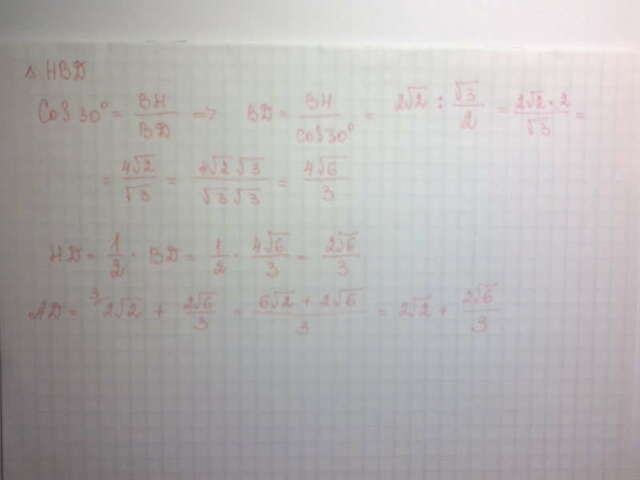 Δ HBD
Cos 30° = BH/BD => BD = BH/cos30° = 2√2 : √3/2 = 2√2·2/√3 =
= 4√2/√3 = 4√2√3/√3√3 = 4√6/3
HD = 1/2 · BD = 1/2 · 4√6/3 = 2√6/3
AD = ³⁄2√2 + 2√6/3 = 6√2 + 2√6/3 = 2√2 + 2√6/3